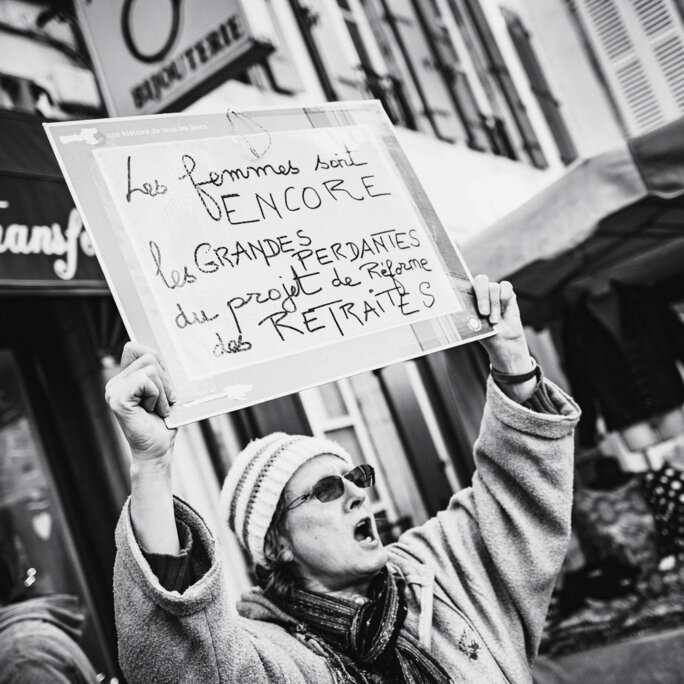 BIJOUTERIE
une histoire de tous les jours
Les femmes sont
ENCORE
les GRANDES PERDANTES
du projet de Réforme
des RETRAITES